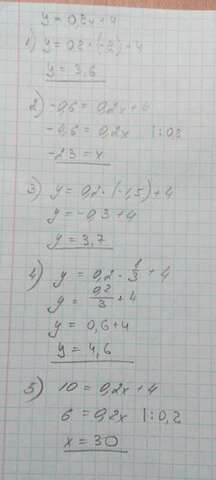 y = 0,2x + 4
1) y = 0,2 · (-2) + 4
y = 3,6
2) -0,6 = 0,2x + 4
-4,6 = 0,2x |:0,2
-23 = x
3) y = 0,2 · (-1,5) + 4
y = -0,3 + 4
y = 3,7
4) y = 0,2 · 1/3 + 4
y = 0,2/3 + 4
y = 0,6 + 4
y = 4,6
5) 10 = 0,2x + 4
6 = 0,2x |:0,2
x = 30